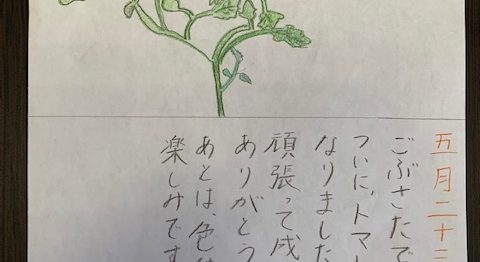 五月二十三
ごぶさたで
ついに、トマ
なりました
頑張って成
ありがとう
あとは、色
楽しみです